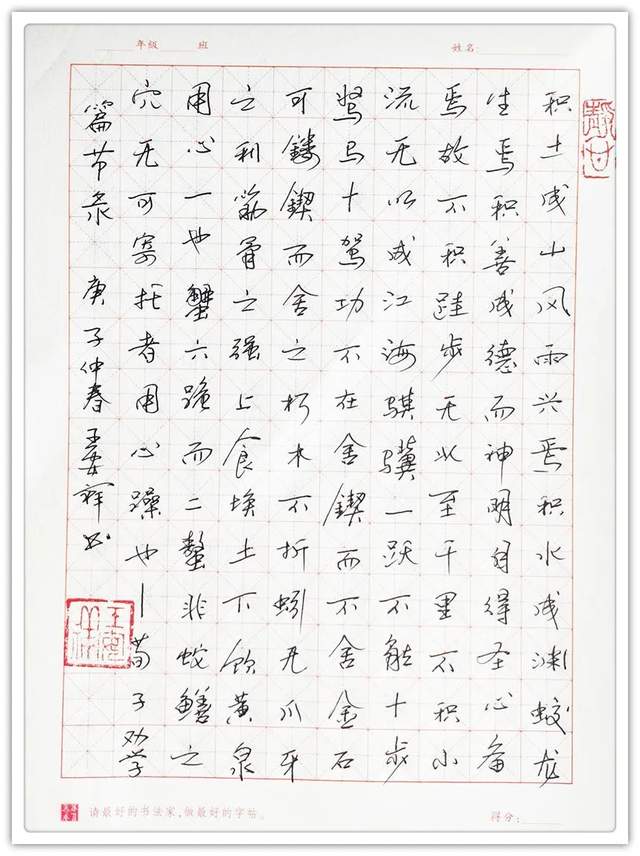 年级 班 姓名:
积土成山风雨兴焉积水成渊蛟龙
生焉积善成德而神明自得圣心备
焉故不积跬步无以至千里不积小
流无以成江海骐骥一跃不能十步
驽马十驾功不在舍锲而不舍金石
可镂锲而舍之朽木不折蚓无爪牙
之利筋骨之强上食埃土下饮黄泉
用心一也蟹六跪而二螯非蛇鳝之
穴无可寄托者用心躁也—荀子劝学
篇节录 庚子仲春 王安祥书
请最好的书法家,做最好的字帖。 得分: